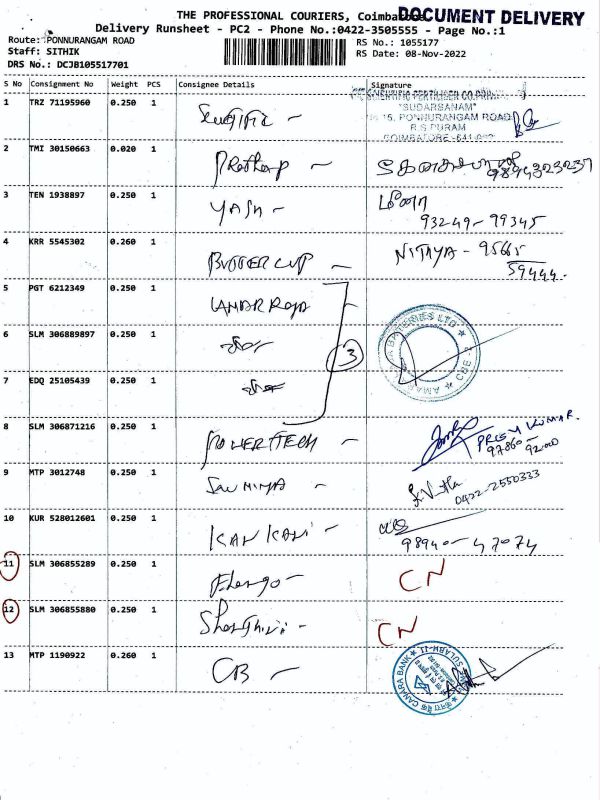 THE PROFESSIONAL COURIERS, Coimbatore
DOCUMENT DELIVERY
Delivery Runsheet - PC2 - Phone No.:0422-3505555 - Page No.:1
Route: PONNURANGAM ROAD
Staff: SITHIK
DRS No.: DCJB105517701
RS No.: 1055177
RS Date: 08-Nov-2022
S No Consignment No Weight PCS Consignee Details Signature
1 TRZ 71195960 0.250 1
SCIENTIFIC FERTILISER CO.PRIV
"SUDARSANAM"
15, PONNURANGAM ROAD
R.S PURAM
COIMBATORE-641 002
2 TMI 30150663 0.020 1 Prathap
9894323237
3 TEN 1938897 0.250 1 YASH மீனா
93249-99345
4 KRR 5545302 0.260 1 BUTTER CUP NITHYA - 95665
59444.
5 PGT 6212349 0.250 1 AMAR Raja
6 SLM 306889897 0.250 1
3
BATTERIES LTD ★ CBE - ★ AMARA
7 EDQ 25105439 0.250 1
8 SLM 306871216 0.250 1 POWERTECH PREM KUMAR.
97860-
92000
9 MTP 3012748 0.250 1 SAUMIYA
0422-2550333
10 KUR 528012601 0.250 1 KAN KANi
98940-47074
11 SLM 306855289 0.250 1 Elango CN
12 SLM 306855880 0.250 1 CN
13 MTP 1190922 0.260 1 CB
CANARA BANK ★ SULABH-II ★